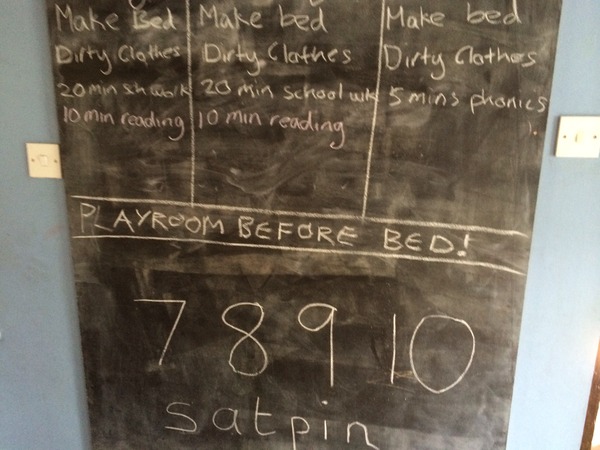 Make Bed Make bed Make bed
Dirty Clothes Dirty Clothes Dirty Clothes
20 min sh work 20 min school wk 5 mins phonics
10 min reading 10 min reading
PLAYROOM BEFORE BED!
7 8 9 10
satpin